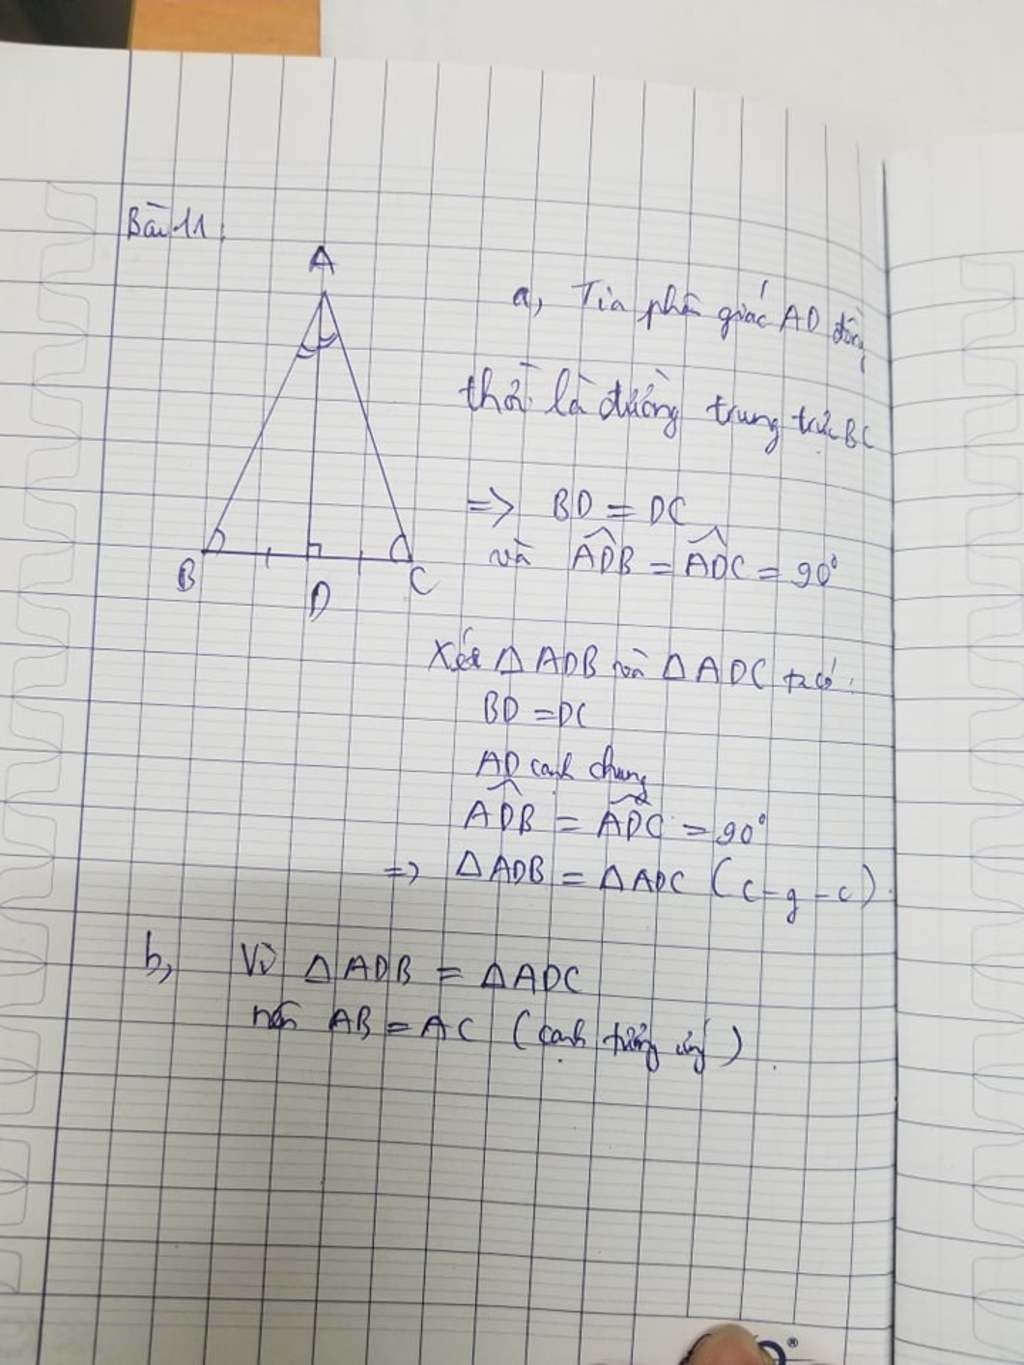 Bài 11.
A
B
D
C
a, Tia phân giác AD đồng
thời là đường trung trực BC
=> BD = DC
và ADB = ADC = 90°
Xét Δ ADB và Δ ADC ta có:
BD = DC
AD cạnh chung
ADB = ADC = 90°
=> Δ ADB = Δ ADC (c-g-c).
b, Vì Δ ADB = Δ ADC
nên AB = AC (cạnh tương ứng).